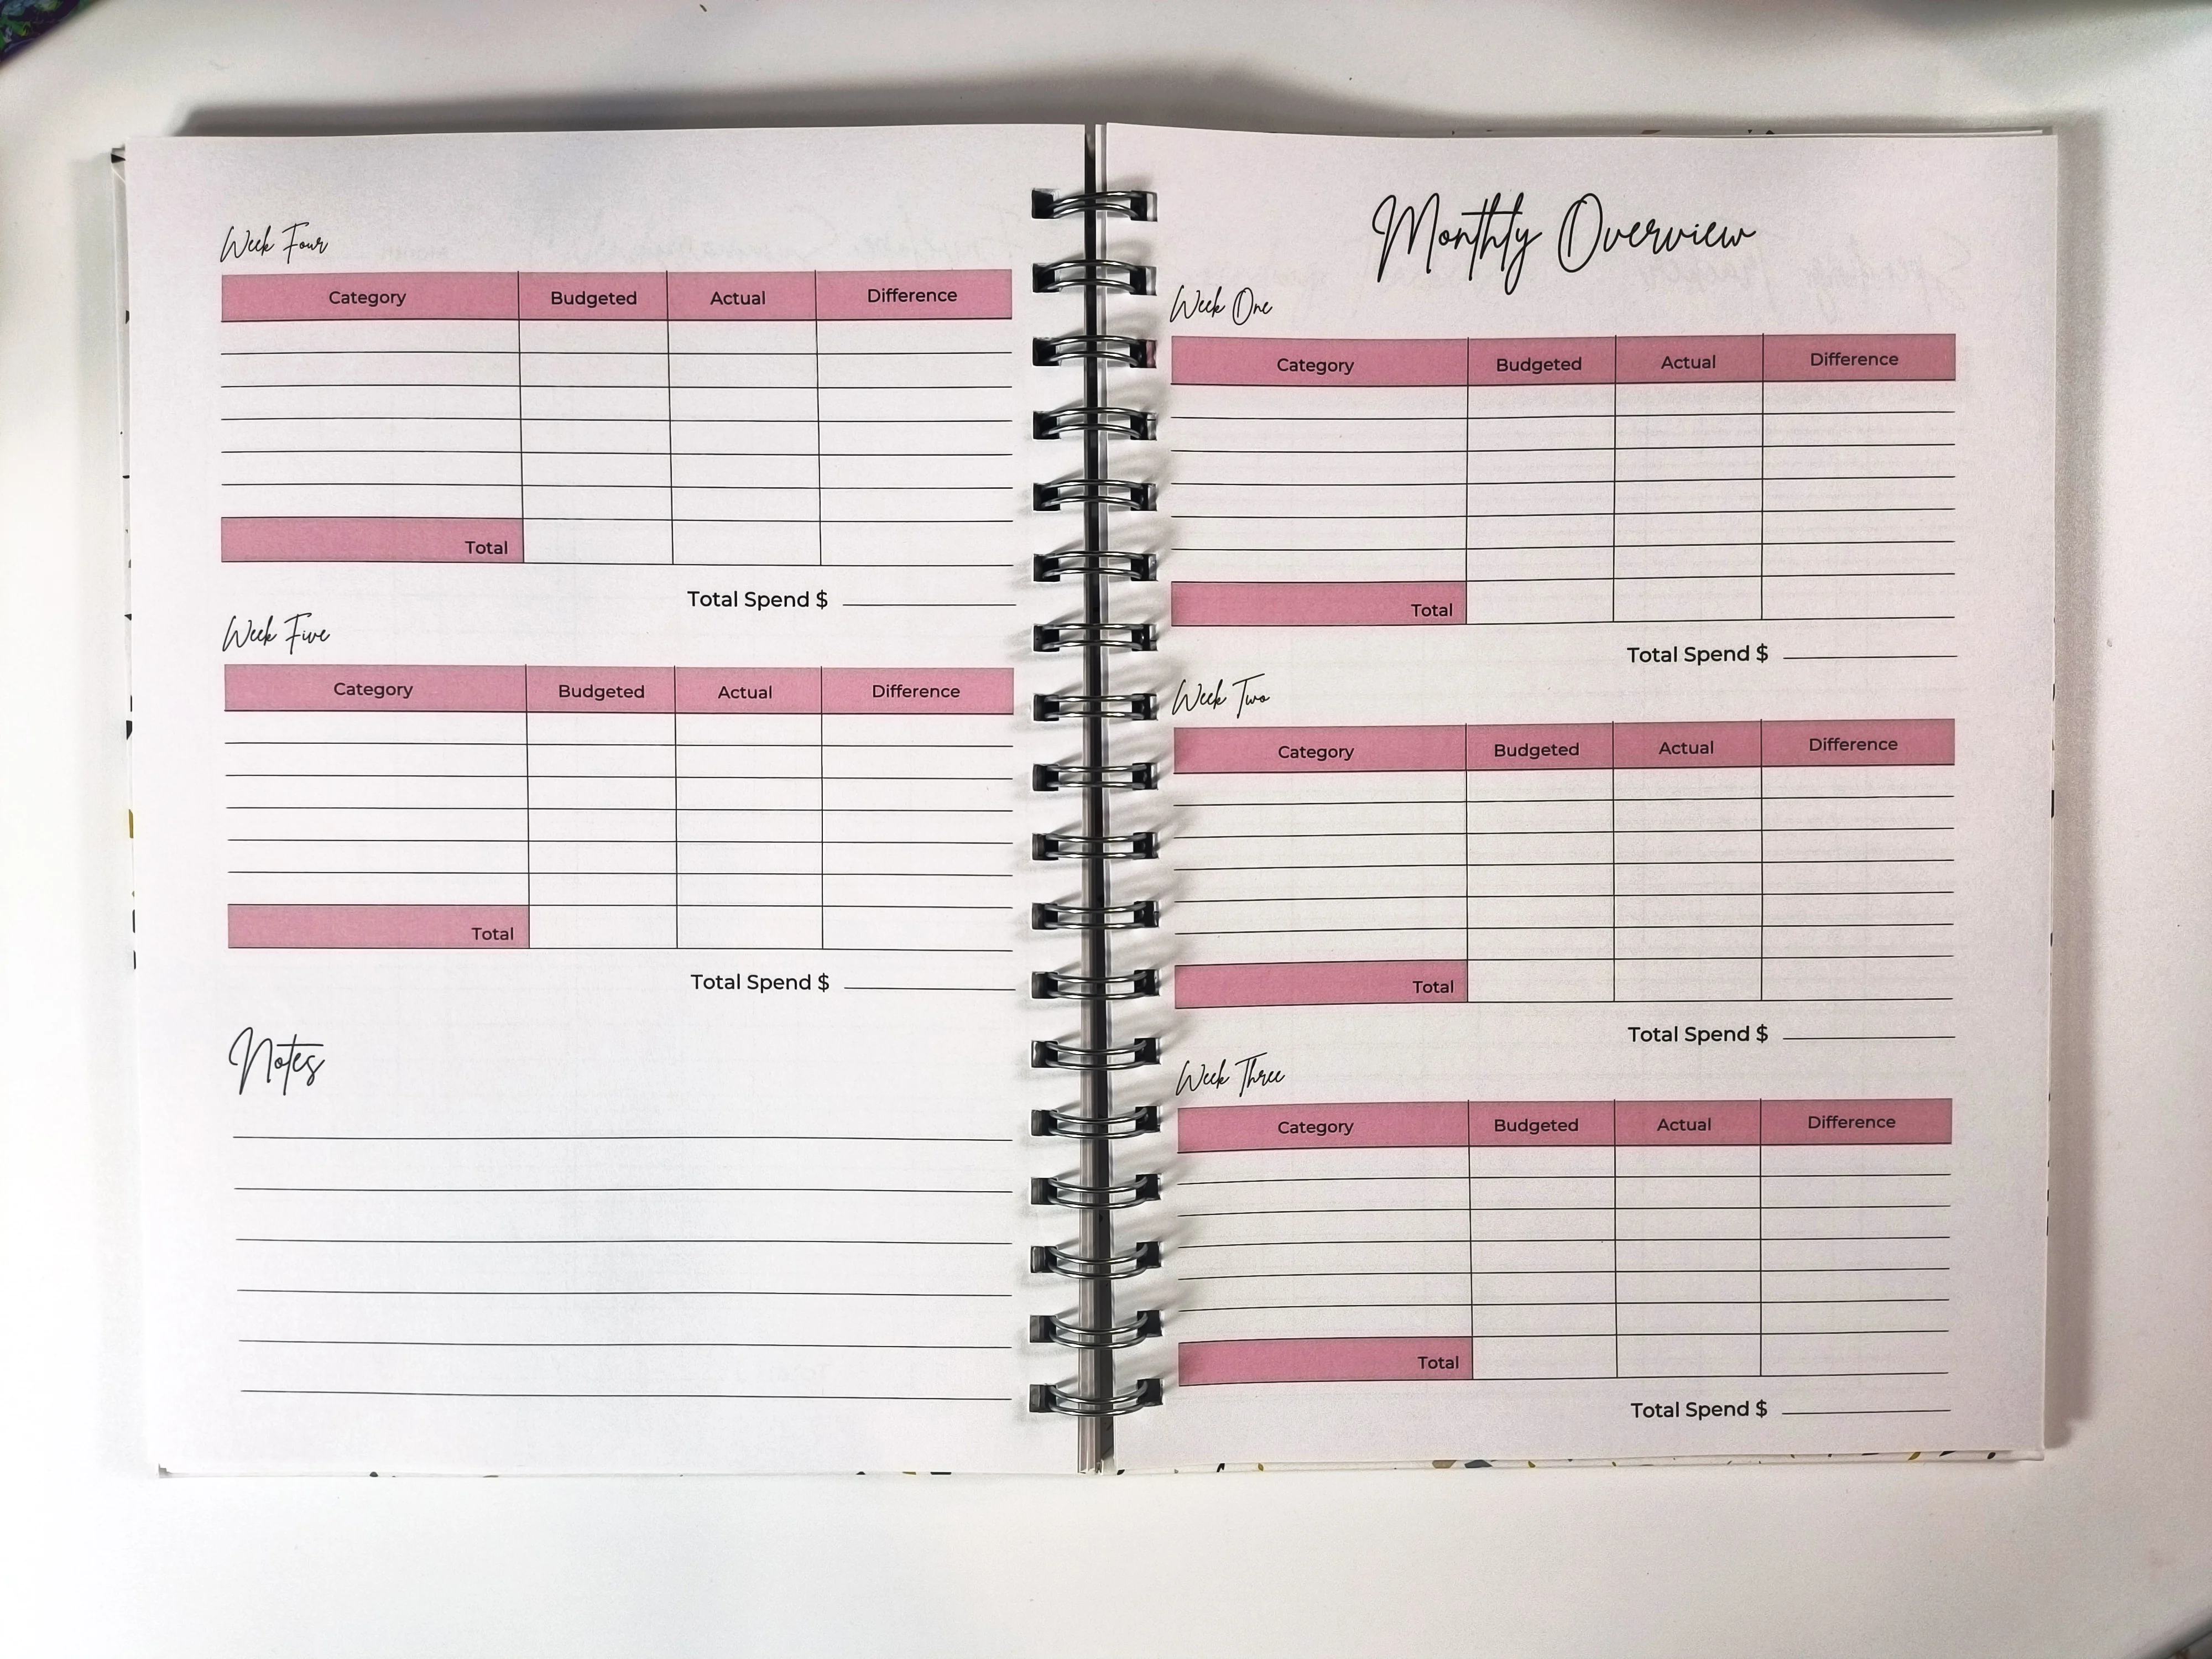 Week Four
Category Budgeted Actual Difference
Total
Total Spend $
Week Five
Category Budgeted Actual Difference
Total
Total Spend $
Notes
Monthly Overview
Week One
Category Budgeted Actual Difference
Total
Total Spend $
Week Two
Category Budgeted Actual Difference
Total
Total Spend $
Week Three
Category Budgeted Actual Difference
Total
Total Spend $